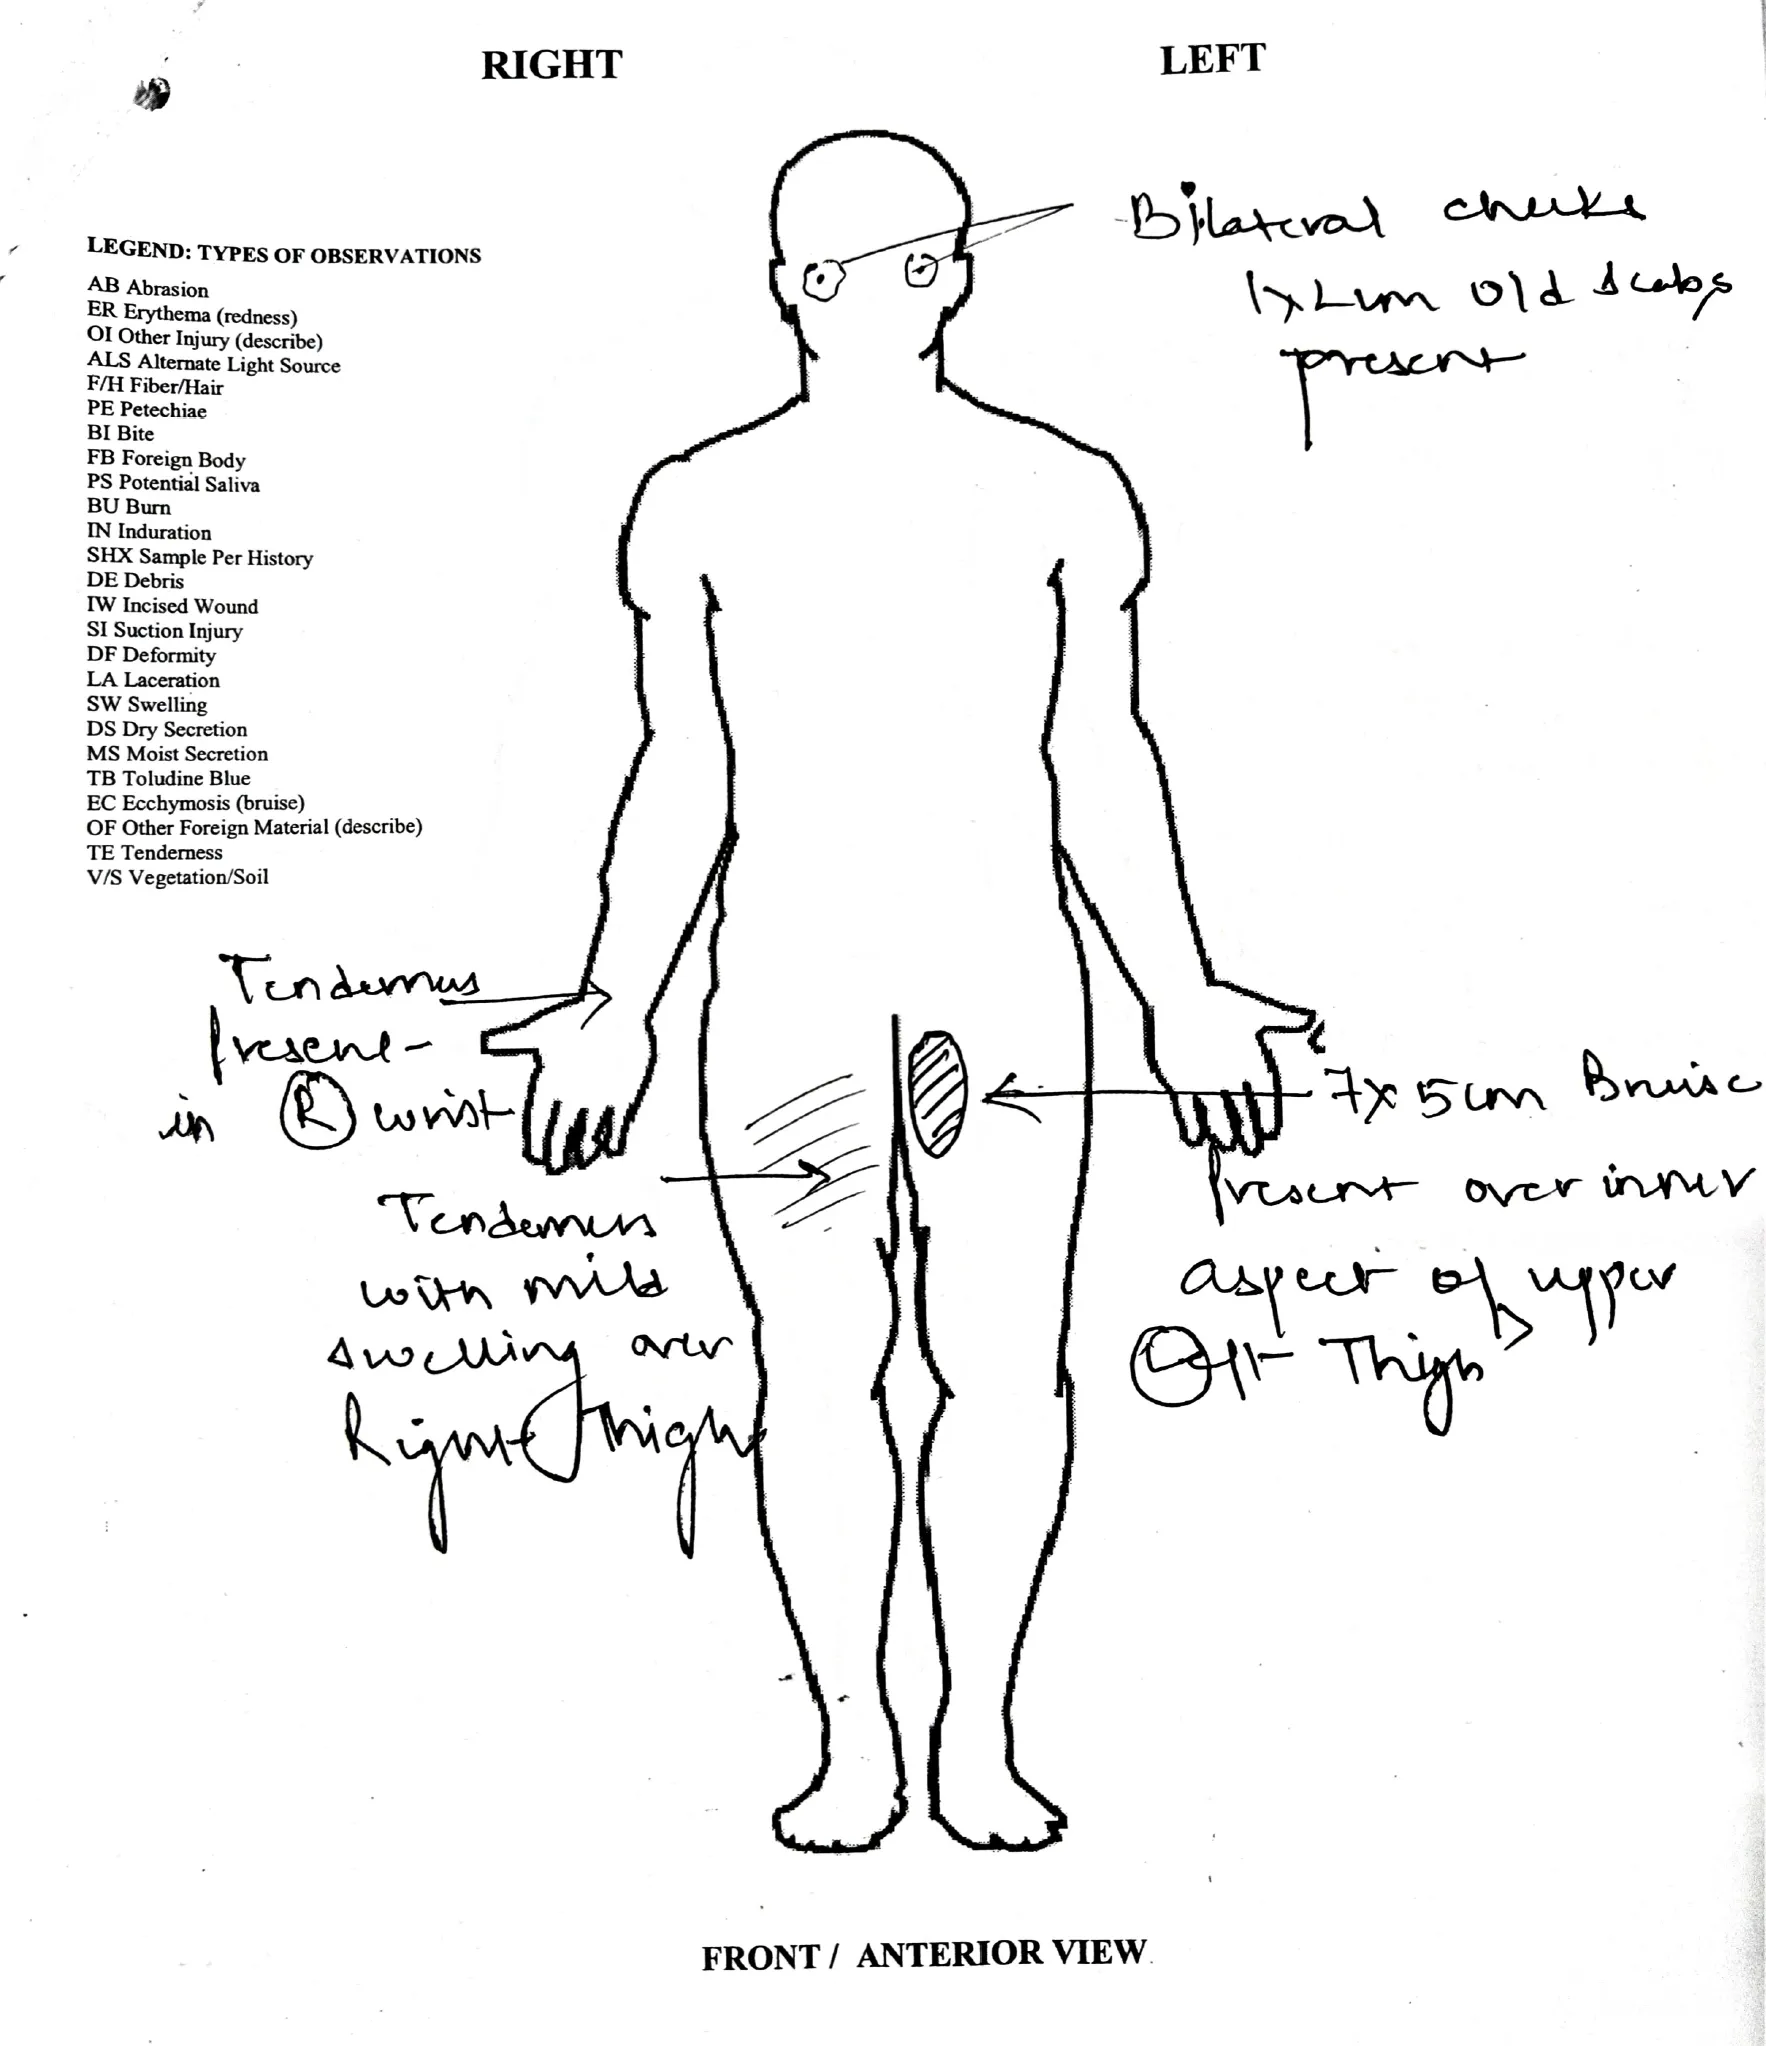 RIGHT
LEFT
LEGEND: TYPES OF OBSERVATIONS
AB Abrasion
ER Erythema (redness)
OI Other Injury (describe)
ALS Alternate Light Source
F/H Fiber/Hair
PE Petechiae
BI Bite
FB Foreign Body
PS Potential Saliva
BU Burn
IN Induration
SHX Sample Per History
DE Debris
IW Incised Wound
SI Suction Injury
DF Deformity
LA Laceration
SW Swelling
DS Dry Secretion
MS Moist Secretion
TB Toludine Blue
EC Ecchymosis (bruise)
OF Other Foreign Material (describe)
TE Tenderness
V/S Vegetation/Soil
Bilateral cheeks
old scabs
present
Tenderness
present
in R wrist
Tenderness
with mild
swelling over
Right Thigh
7x5cm Bruise
present over inner
aspect of upper
Left Thigh
FRONT / ANTERIOR VIEW